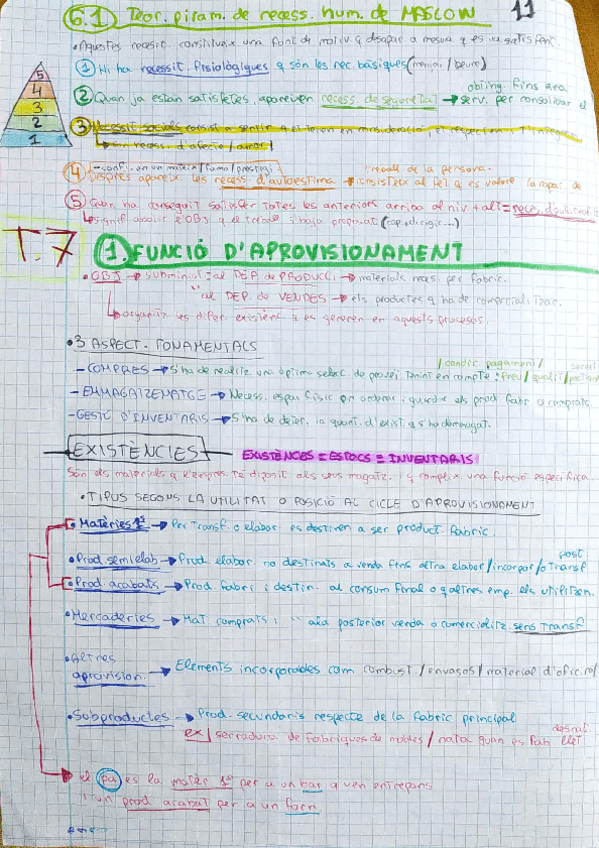 6.1 Teor. piram. de necess. hum. de MASLOW 11
• Aquestes necssit. constitueix una font de motiv q desapar. a mesura q es va satisfent.
① Hi ha necessit. fisiològiques q són les nec. bàsiques (menjar / beure)
obting. fins ara
② Quan ja estan satisfetes, apareixen necess. de seguretat → serv. per consolidar el
5
4
3
2
1
③ Necessit socials
són necess. d'afecte / amor
④
Després apareix les necess. d'autoestima → consisteix al fet q es valore la capac. de
treball de la persona.
⑤ Quan ha conseguit satisfer totes les anteriors arriba al niv + alt =
T.7 ①. FUNCIÓ D'APROVISIONAMENT
• OBJ → subminist. : al DEP. de PRODUCCI → materials necess. per fabric.
" al DEP. de VENDES → els productes q ha de comercialitzar.
→ organitz les difer existènc q es generen en aquests processos.
• 3 ASPECT. FONAMENTALS
/ condic. pagament / servei
- COMPRES → S'ha de realitz una òptima selec. de proveï tenint en compte : Preu / qualit /
- EMMAGATZEMATGE → Necess. espai físic on ordenar i guardar els prod. fabr o comprats.
- GESTIÓ D'INVENTARIS → S'ha de deter. la quant. d'exist q s'ha d'emmagat.
EXISTÈNCIES EXISTÈNCES = ESTOCS = INVENTARIS
Són els materials q l'empres. té diposit als seus magatz. i q complix una funció específica.
• TIPUS SEGONS LA UTILITAT O POSICIÓ AL CICLE D'APROVISIONAMENT
• Matèries 1ªs → Per transf. o elabor es destinen a ser product. fabric.
post
• Prod. semielab → Prod. elabor no destinats a venda fins altra elabor / incorpor / o transf
• Prod. acabats → Prod. fabri i destin. al consum final o q altres emp. els utilitzen.
• Mercaderies → Mat comprats i " a la posterior venda o comercialitz. sens transf
• Altres
aprovision. → Elements incorporables com combust / envasos / material d'oficina /
• Subproductes → Prod. secundaris respecte de la fabric principal
desnat.
ex / serradura de fàbriques de mobles / nata quan es fab llet
el pa es la matèr 1ª per a un bar q ven entrepans
" un prod acabat per a un forn